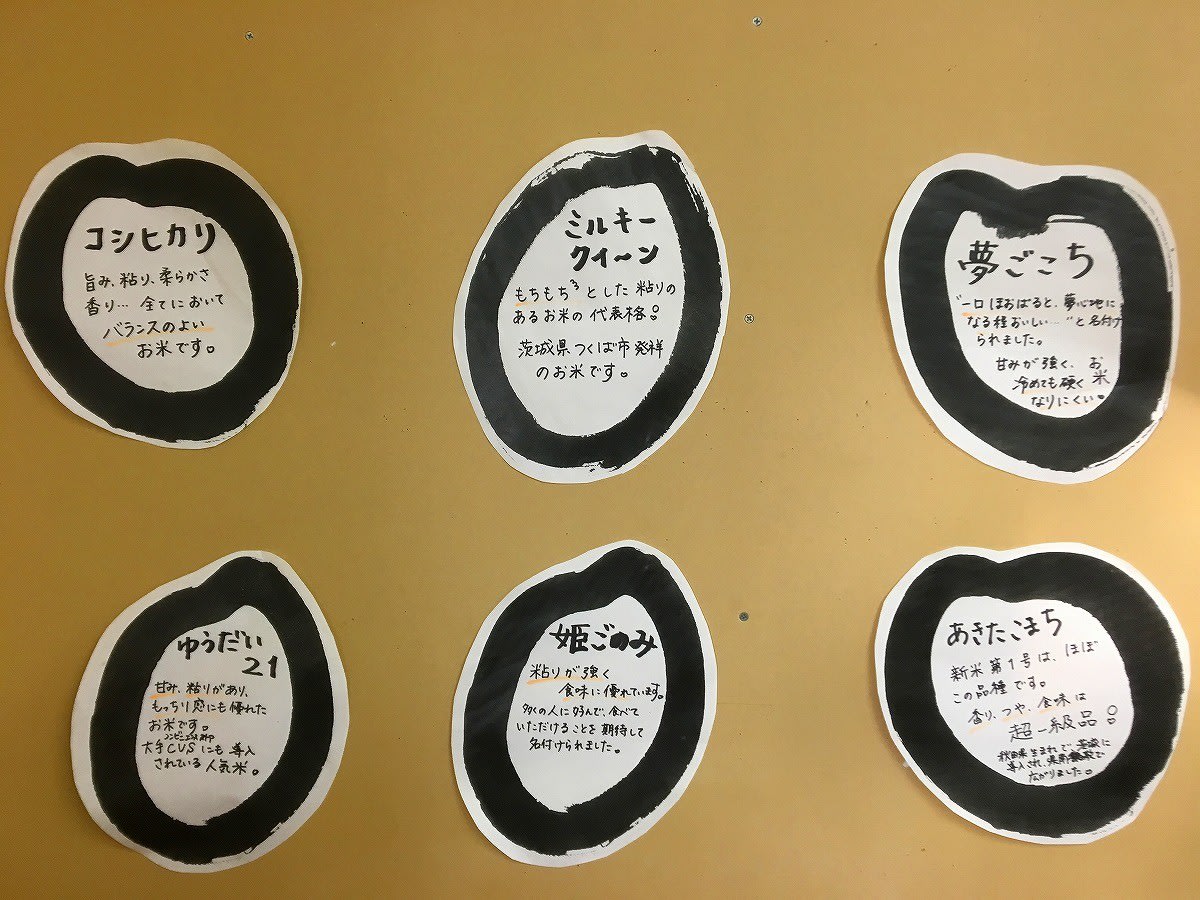 コシヒカリ
旨み、粘り、柔らかさ
香り… 全てにおいて
バランスのよい
お米です。
ミルキー
クイ〜ン
もちもちっとした粘りの
あるお米の代表格!
茨城県つくば市発祥
のお米です。
夢ごこち
"一口ほおばると、夢心地に
なる程おいしい…"と名付け
られました。
甘みが強く、お米
冷めても硬く
なりにくい。
ゆうだい
21
甘み、粘りがあり、
もっちり感にも優れた
お米です。
大手CVSにも導入
されている人気米。
姫ごのみ
粘りが強く
食味に優れています。
多くの人に好んで、食べて
いただけることを期待して
名付けられました。
あきたこまち
新米第1号は、ほぼ
この品種です。
香り、つや、食味は
超一級品!
秋田県生まれで、茨城に
導入され、
広がりました。